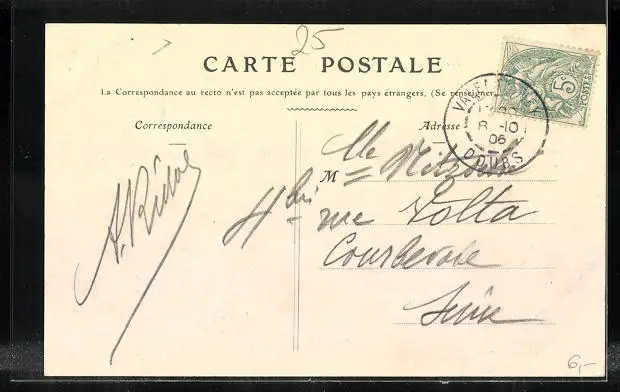 25
CARTE POSTALE
La Correspondance au recto n'est pas acceptée par tous les pays étrangers, (Se renseigner
Correspondance
Adresse
5c
POSTES
8 -10
06
DOUBS
Mlle
M
4 bis rue Volta
Courbevoie
Seine
A.
6,-